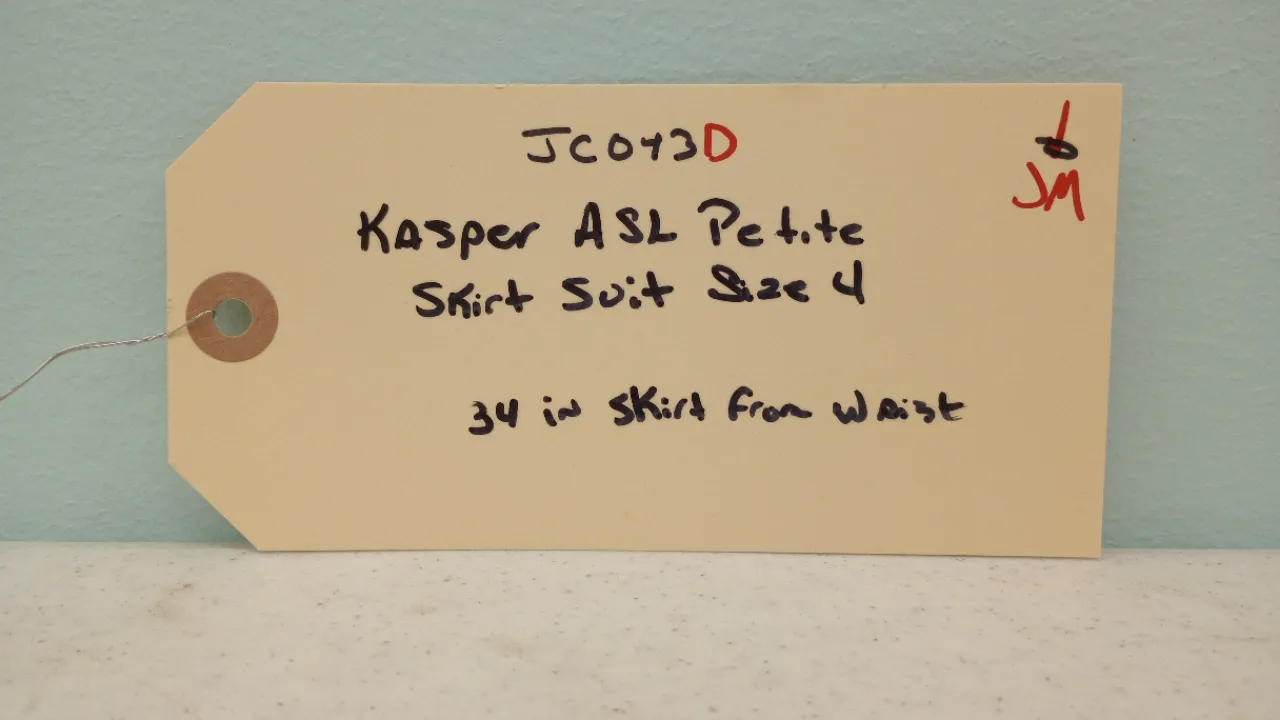 JC043D
JM
Kasper ASL Petite
Skirt Suit Size 4
34 in Skirt from waist